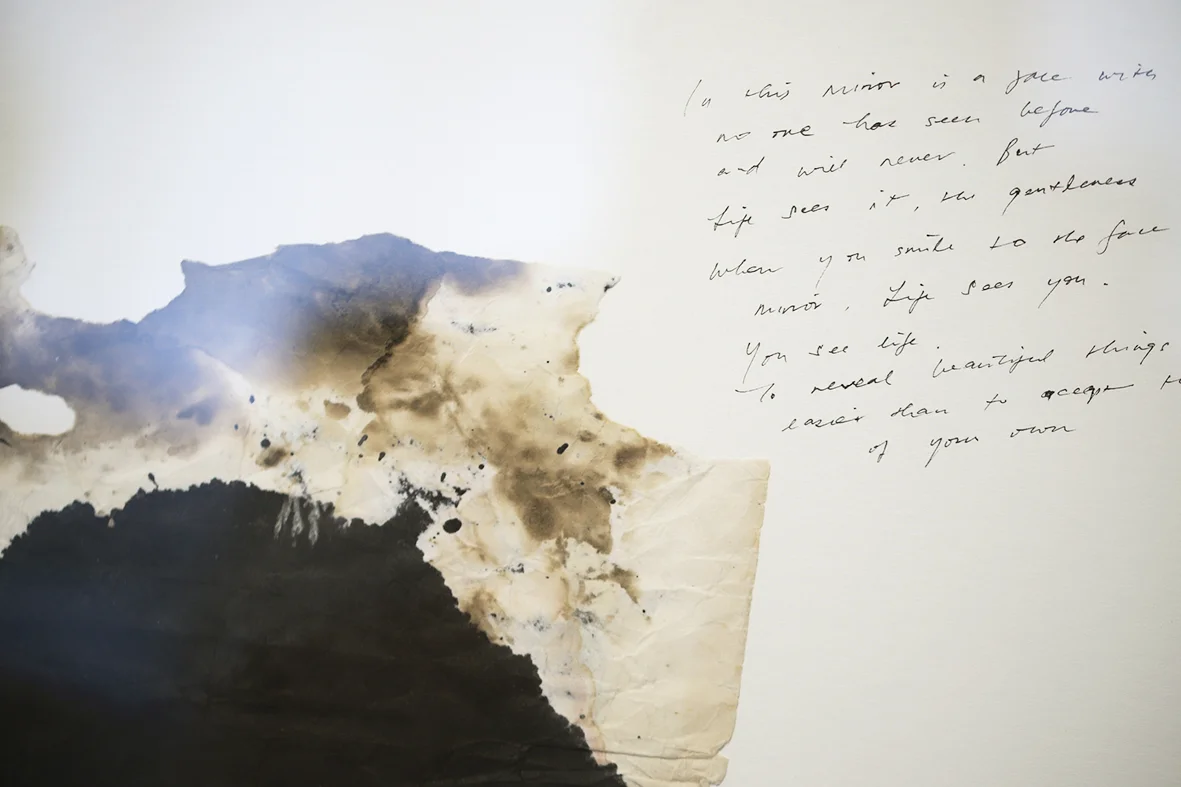 In this mirror is a face with
no one has seen before
and will never. But
Life sees it, the gentleness
When you smile to the face
mirror. Life sees you.
You see life.
To reveal beautiful things
easier than to accept
of your own